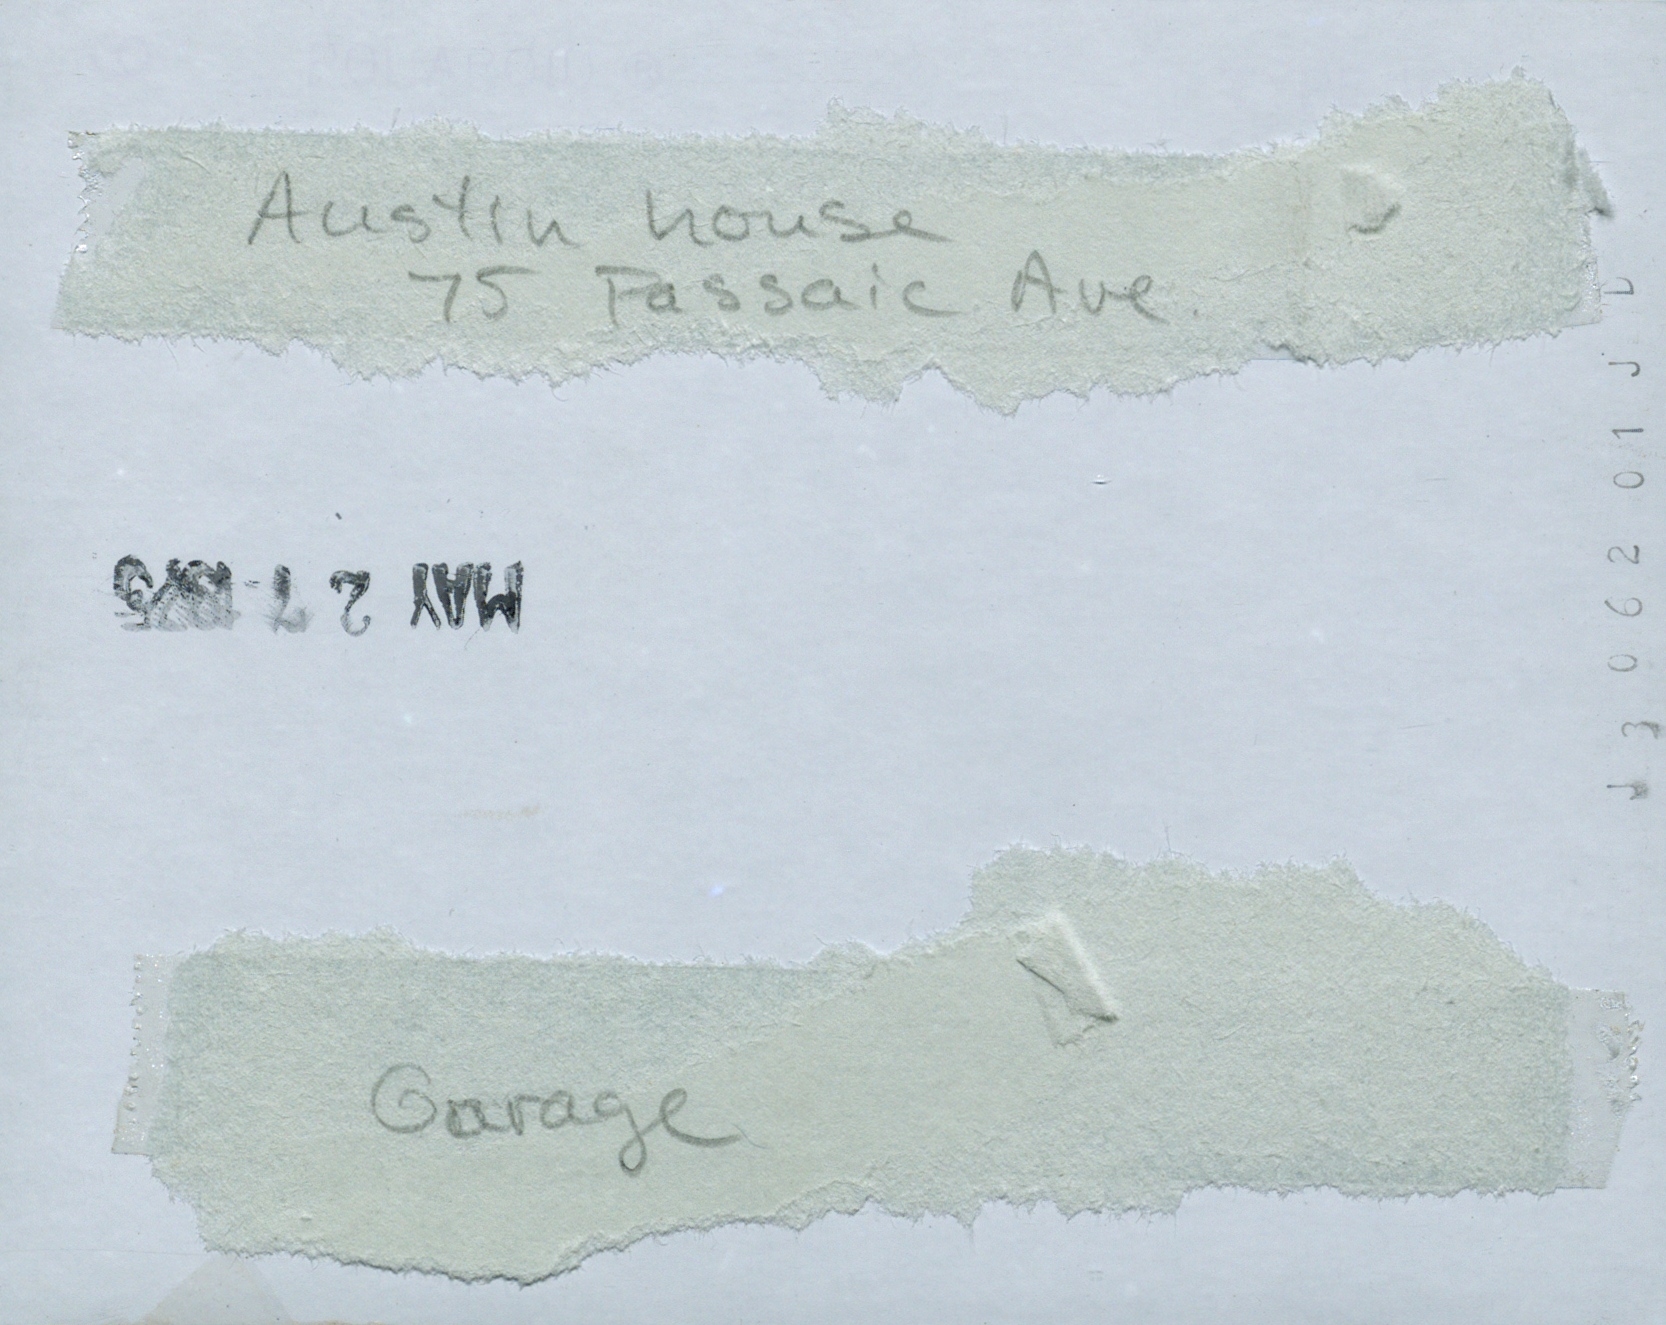 Austin house
75 Passaic Ave.
MAY 27 1975
J306201JD
Garage